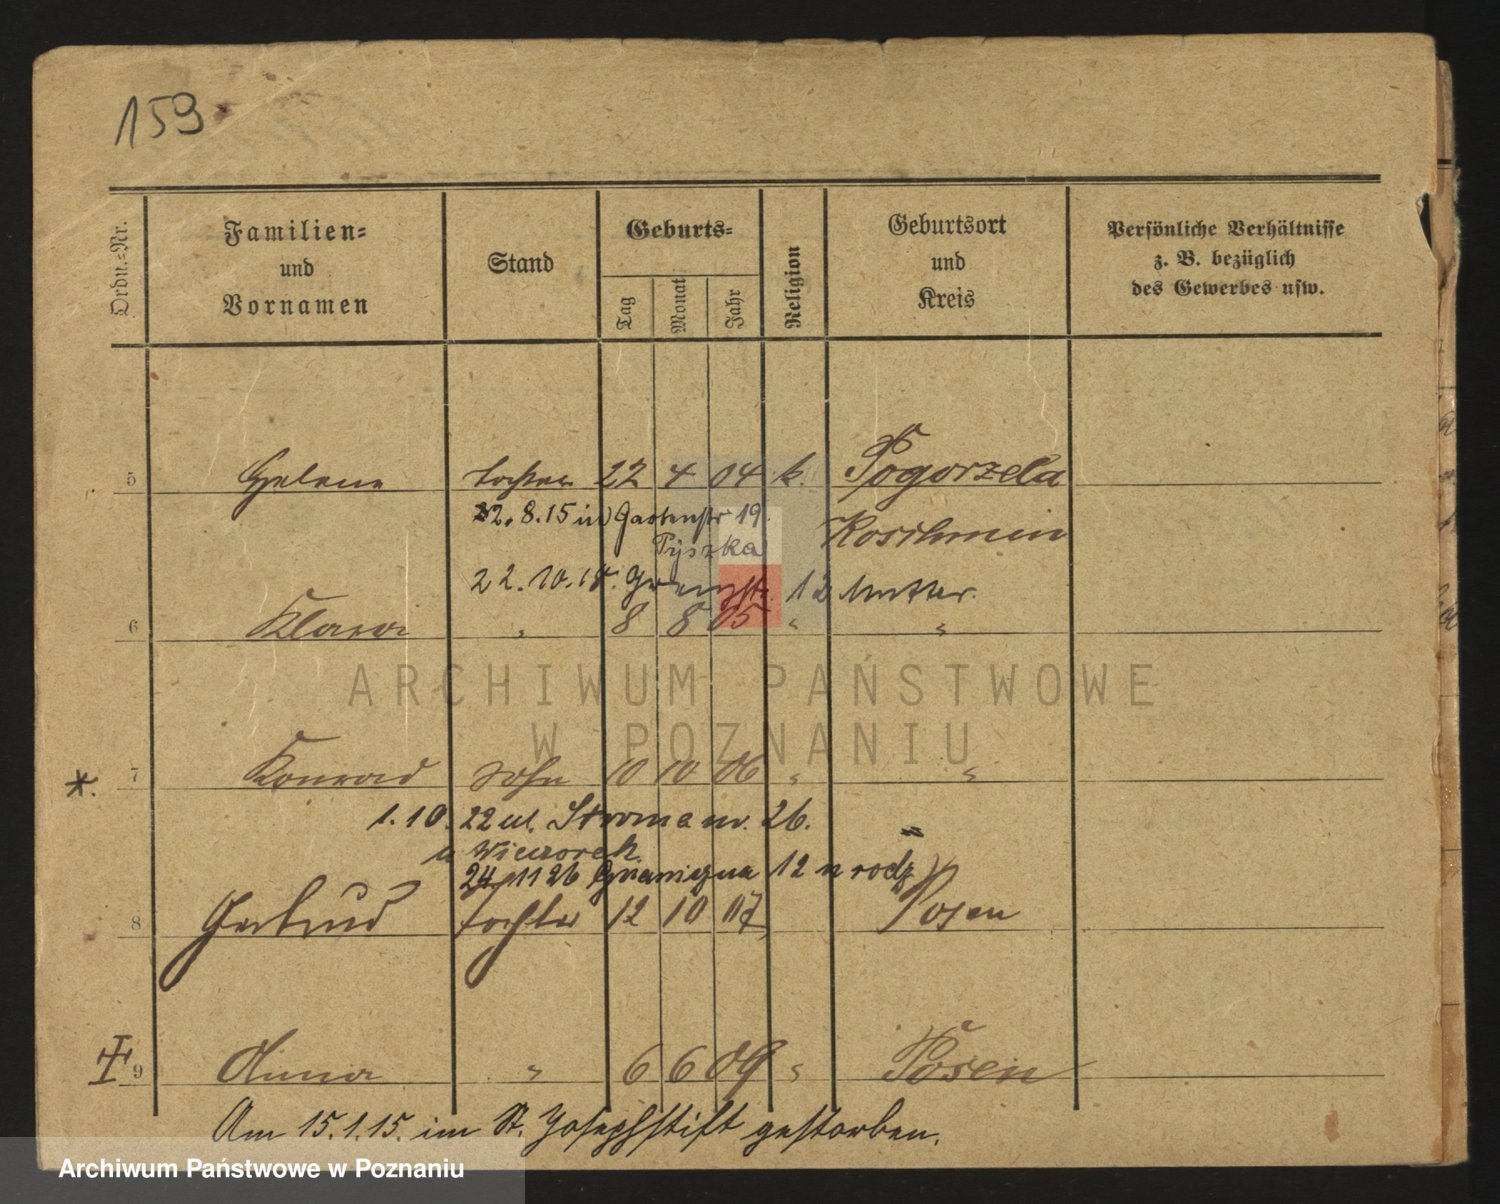 159
Ordn.-Nr.
Familien- und Vornamen
Stand
Geburts-
Tag Monat Jahr
Religion
Geburtsort und Kreis
Persönliche Verhältnisse z. B. bezüglich des Gewerbes usw.
5 Helene Tochter 22 4 04 k. Pogorzela
22.8.15 Gartenstr 19. Koschmin
Pyszka
22.10.18. Grenzstr. 12 Mutter.
6 Klara " 8 8 05 " "
ARCHIWUM PAŃSTWOWE
W POZNANIU
*. 7 Konrad Sohn 10 10 06 " "
1.10.22 ul. Stroma nr. 26.
u Wieczorek "
24/11 26 Gnanigna 12 u rodz
8 Gertrud Tochter 12 10 07 Posen
9 Anna " 6 6 09 " Posen
Am 15.1.15. im St. Josephstift gestorben.
Archiwum Państwowe w Poznaniu